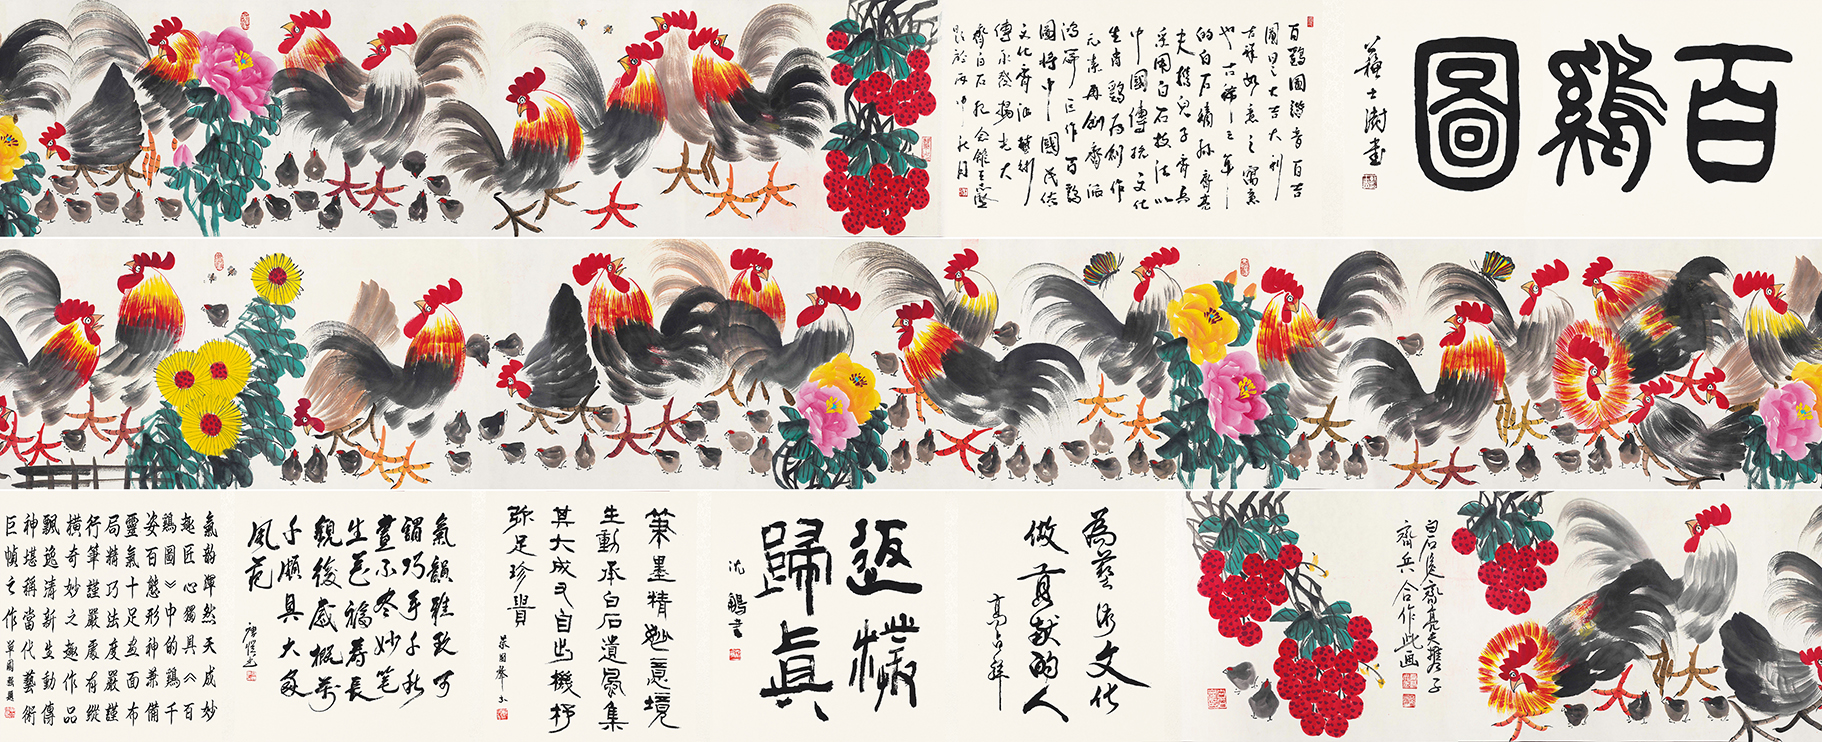 百鷄圖
蘇士澍書
百鷄圖諧音百吉
圖日之大吉大利
吉祥如意之寓意
也古稀之年
的白石嫡孫齊亮
夫携兒子齊兵
采用白石技法以
中國傳統文化
生肖鷄爲創作
元素再創齊派
鴻篇巨作百鷄
圖將中國民俗
文化齊派藝術
傳承發揚光大
齊白石紀念館王志堅
題於丙申秋月
白石後裔齊亮夫携子
齊兵合作此画
為藝術文化
做貢獻的人
高占祥
返樸
歸真
沈鵬書
筆墨精意境
生動承白石遺風集
其大成又自出機杼
弥足珍貴
氣韻雅致可
謂巧手子孙
畫不尽妙笔
生花福壽長
觀後感慨万
千頗具大家
風范
氣韵渾然天成妙
趣匠心獨具《百
鷄圖》中的鷄千
姿百態形神兼備
靈氣十足画面布
局精巧法度嚴謹
行筆謹嚴有縱
橫奇妙之趣作品
飄逸清新生動傳
神堪稱當代藝術
巨幀之作
單國強題